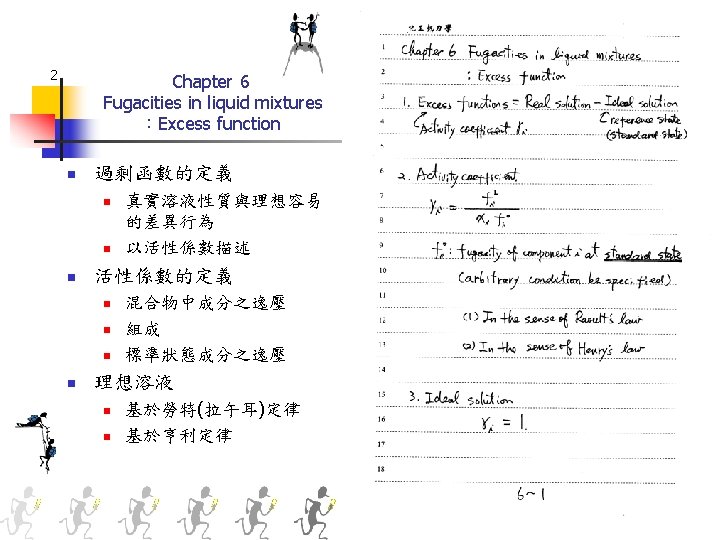 2
Chapter 6
Fugacities in liquid mixtures
：Excess function
過剩函數的定義
真實溶液性質與理想容易
的差異行為
以活性係數描述
活性係數的定義
混合物中成分之逸壓
組成
標準狀態成分之逸壓
理想溶液
基於勞特(拉午耳)定律
基於亨利定律
化工熱力學
1 Chapter 6 Fugacities in liquid mixtures
2 : Excess function
3 1. Excess functions = Real solution − Ideal solution
4 Activity coefficient γi (reference state
5 (standard state)
6 2. Activity coefficient
7 γi = fi^L / xi fi°
8
9 fi°: fugacity of component i at standard state
10 (arbitrary condition be specified)
11
12 (1) In the sense of Raoult's law
13 (2) In the sense of Henry's law
14
15 3. Ideal solution
16 γi = 1.
17
18
6~1